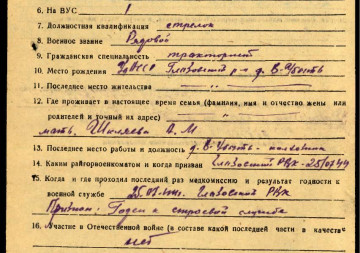 6. На ВУС 1
7. Должностная квалификация стрелок
8. Военное звание Рядовой
9. Гражданская специальность тракторист
10. Место рождения УАССР Глазовский р-н д. В-Убыть
11. Последнее место жительства — " —
12. Где проживает в настоящее время семья (фамилия, имя и отчество жены или
родителей и точный их адрес)
мать, А. М
13. Последнее место работы и должность д. В-Убыть -
14. Каким райгорвоенкоматом и когда призван Глазовский РВК - 25/0744
15. Когда и где проходил последний раз медкомиссию и результат годности к
военной службе 25.07.44г. Глазовский РВК
Признан: Годен к строевой службе
16. Участие в Отечественной войне (в составе какой последней части в качестве
нет